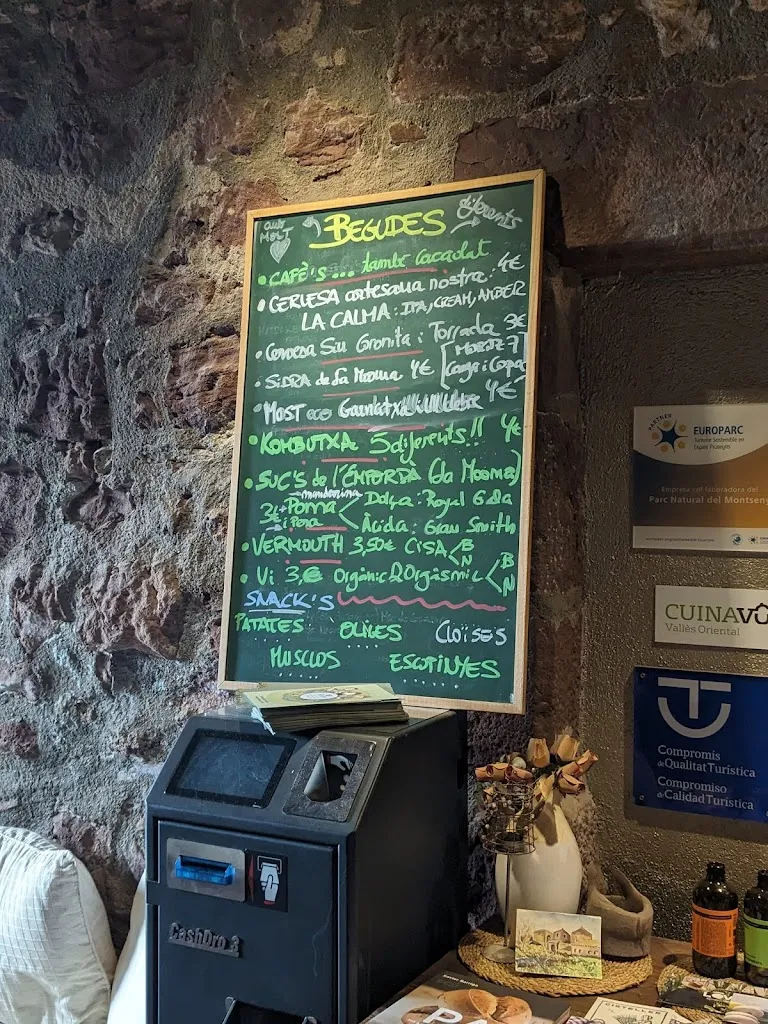 BEGUDES diferents
MOLT
CAFÈ'S ... també Cacaolat
CERVESA artesana nostra: 4€
LA CALMA: IPA, CREAM, AMBER
Cervesa Sin Gronita i Torrada 3€
SIDRA de la Mooma 4€
MOST eco Garnatxa 4€
KOMBUTXA 5 diferents!! 4€
SUC'S de l'EMPORDÀ (la Mooma)
mandarina
Poma Dolça: Royal Gala
i Pera Àcida: Gran Smith
VERMOUTH 3,50€ CISA B N
Vi 3,€ Orgànic & Orgàsmic B N
SNACK'S
PATATES OLIVES CLOÏSES
MUSCLOS ESCOPINYES
PARTNER
EUROPARC
Turisme Sostenible en
Espais Protegits
Empresa col·laboradora del
Parc Natural del Montseny
CUINAVO
Vallès Oriental
Compromís
de Qualitat Turística
Compromiso
de Calidad Turística
CashDro 3
PA